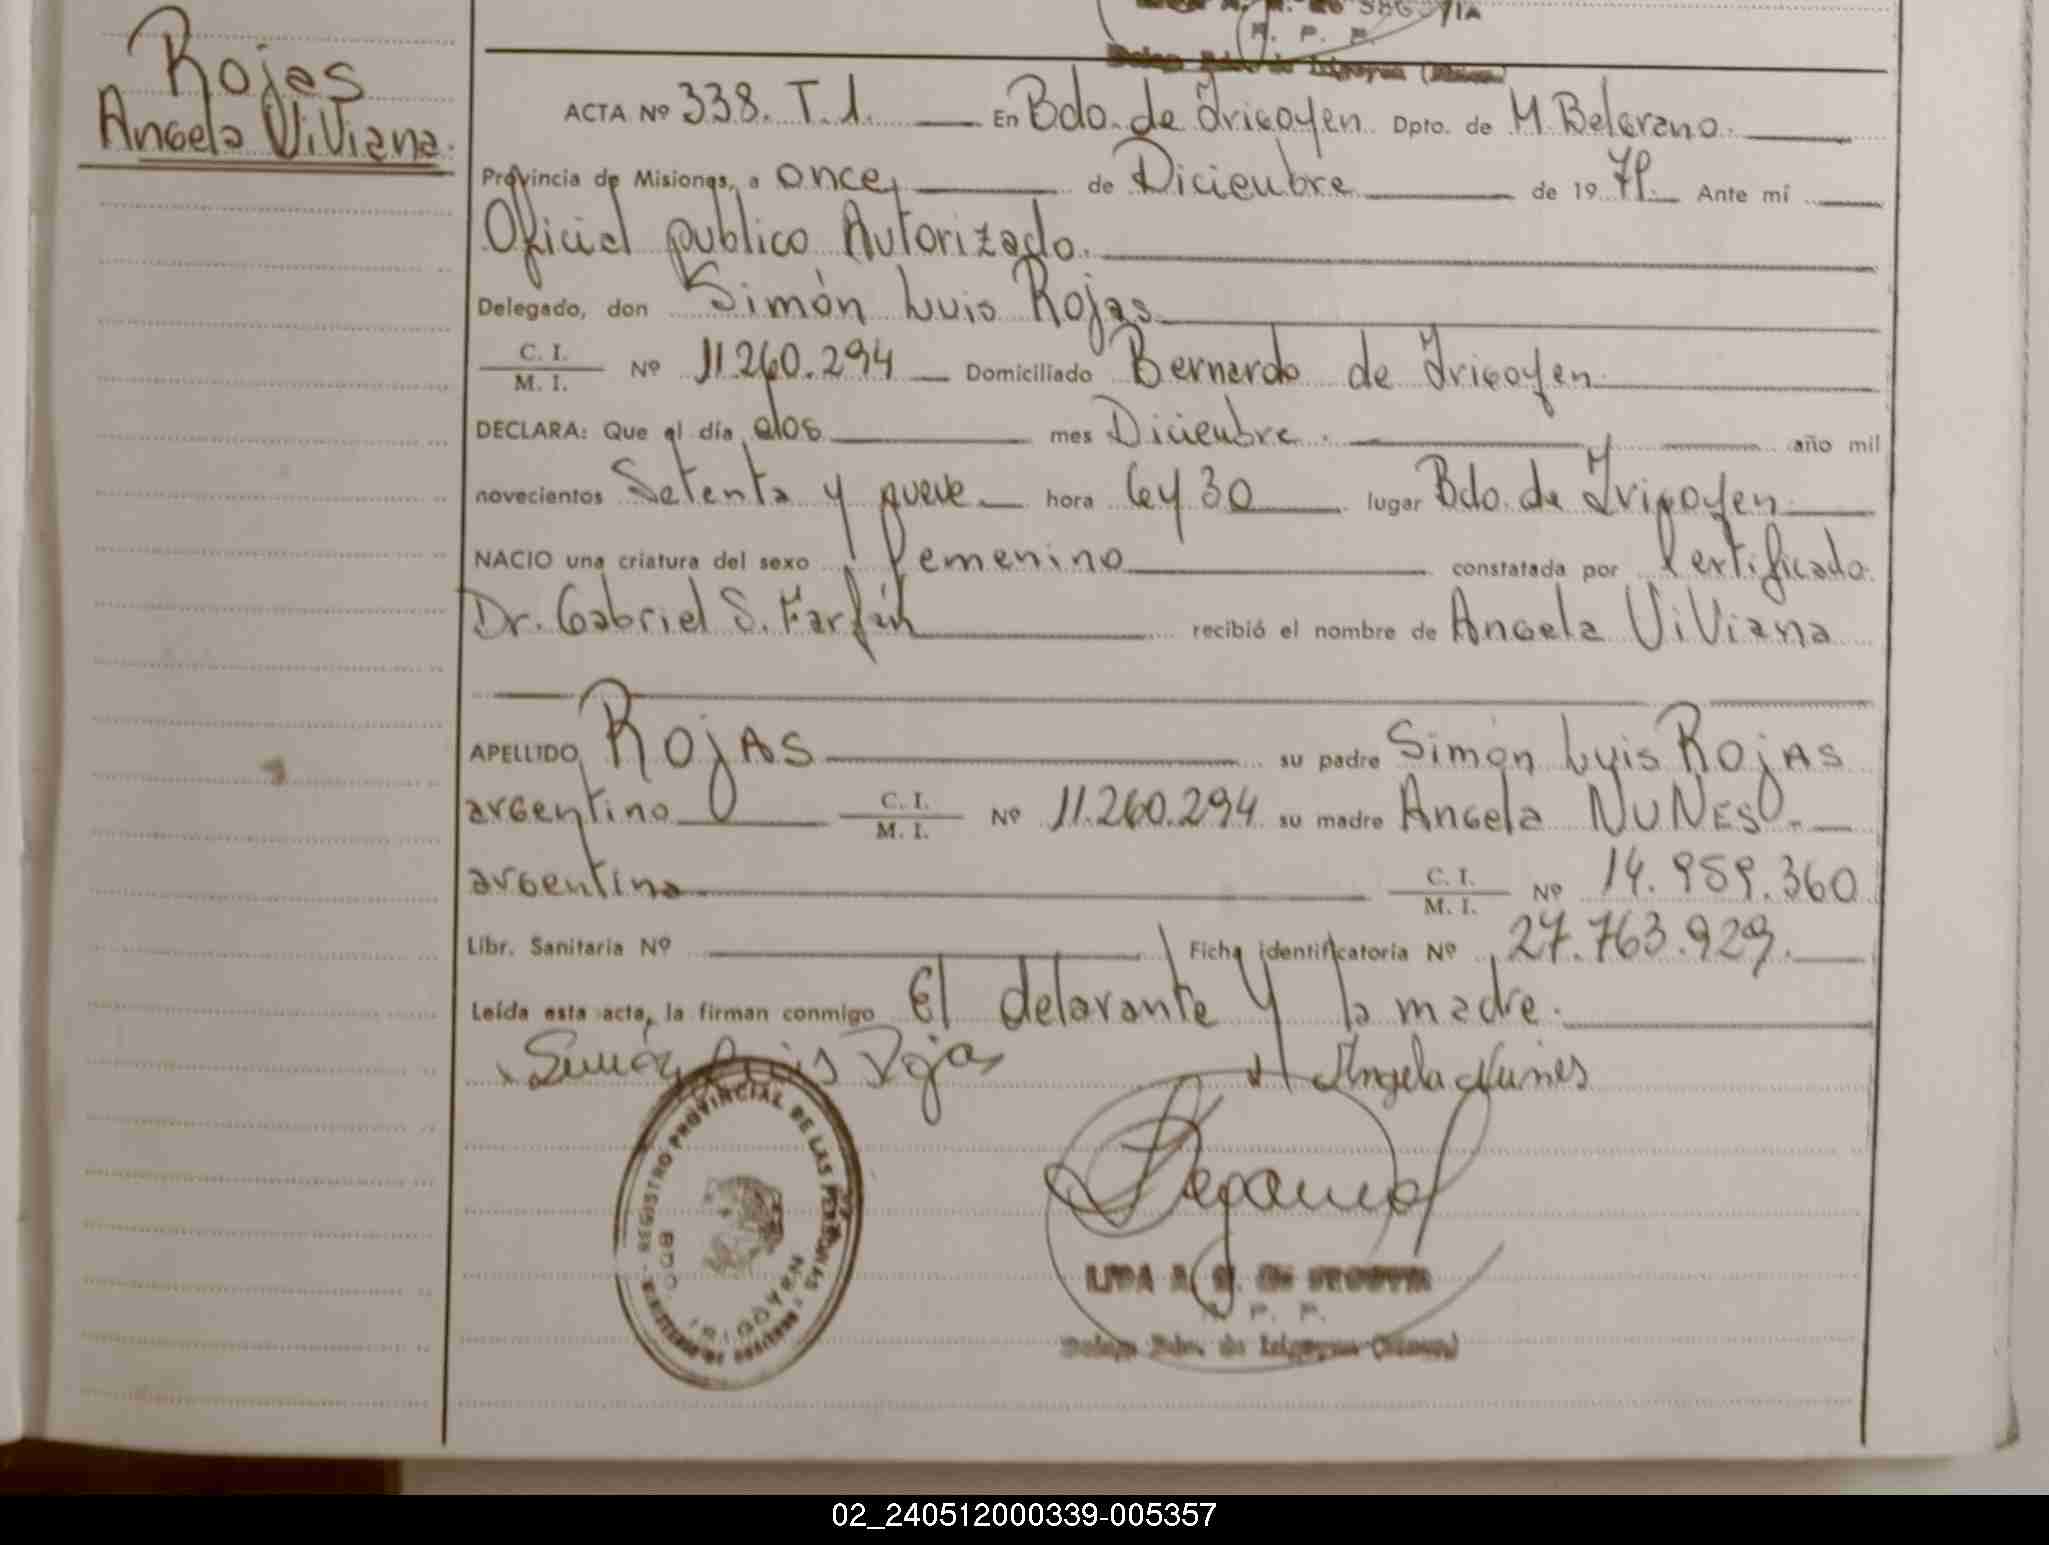 Rojas
Angela Viviana.
ACTA Nº 338. T.1. En Bdo. de Irigoyen Dpto. de M. Belgrano.
Provincia de Misiones, a once, de Diciembre de 19 79. Ante mí
Oficial publico Autorizado.
Delegado, don Simón Luis Rojas
C. I. / M. I. Nº 11.260.294 Domiciliado Bernardo de Irigoyen
DECLARA: Que el día dos mes Diciembre. año mil
novecientos Setenta y nueve hora 6 y 30 lugar Bdo. de Irigoyen
NACIO una criatura del sexo femenino constatada por Certificado
Dr. Gabriel S. Farfán recibió el nombre de Angela Viviana
APELLIDO Rojas su padre Simón Luis Rojas
argentino C. I. / M. I. Nº 11.260.294 su madre Angela NUNES.
argentina C. I. / M. I. Nº 14.959.360
Libr. Sanitaria Nº Ficha identificatoria Nº 27.763.929.
Leída esta acta, la firman conmigo El delarante y la madre.
Simón Luis Rojas Angela Nunes
REGISTRO PROVINCIAL DE LAS PERSONAS
BDO IRIGOYEN
MINISTERIO DE GOBIERNO
LIDA A. DE SEGOVIA
P. P.
Deleg. Bdo. de Irigoyen (Misiones)
02_240512000339-005357